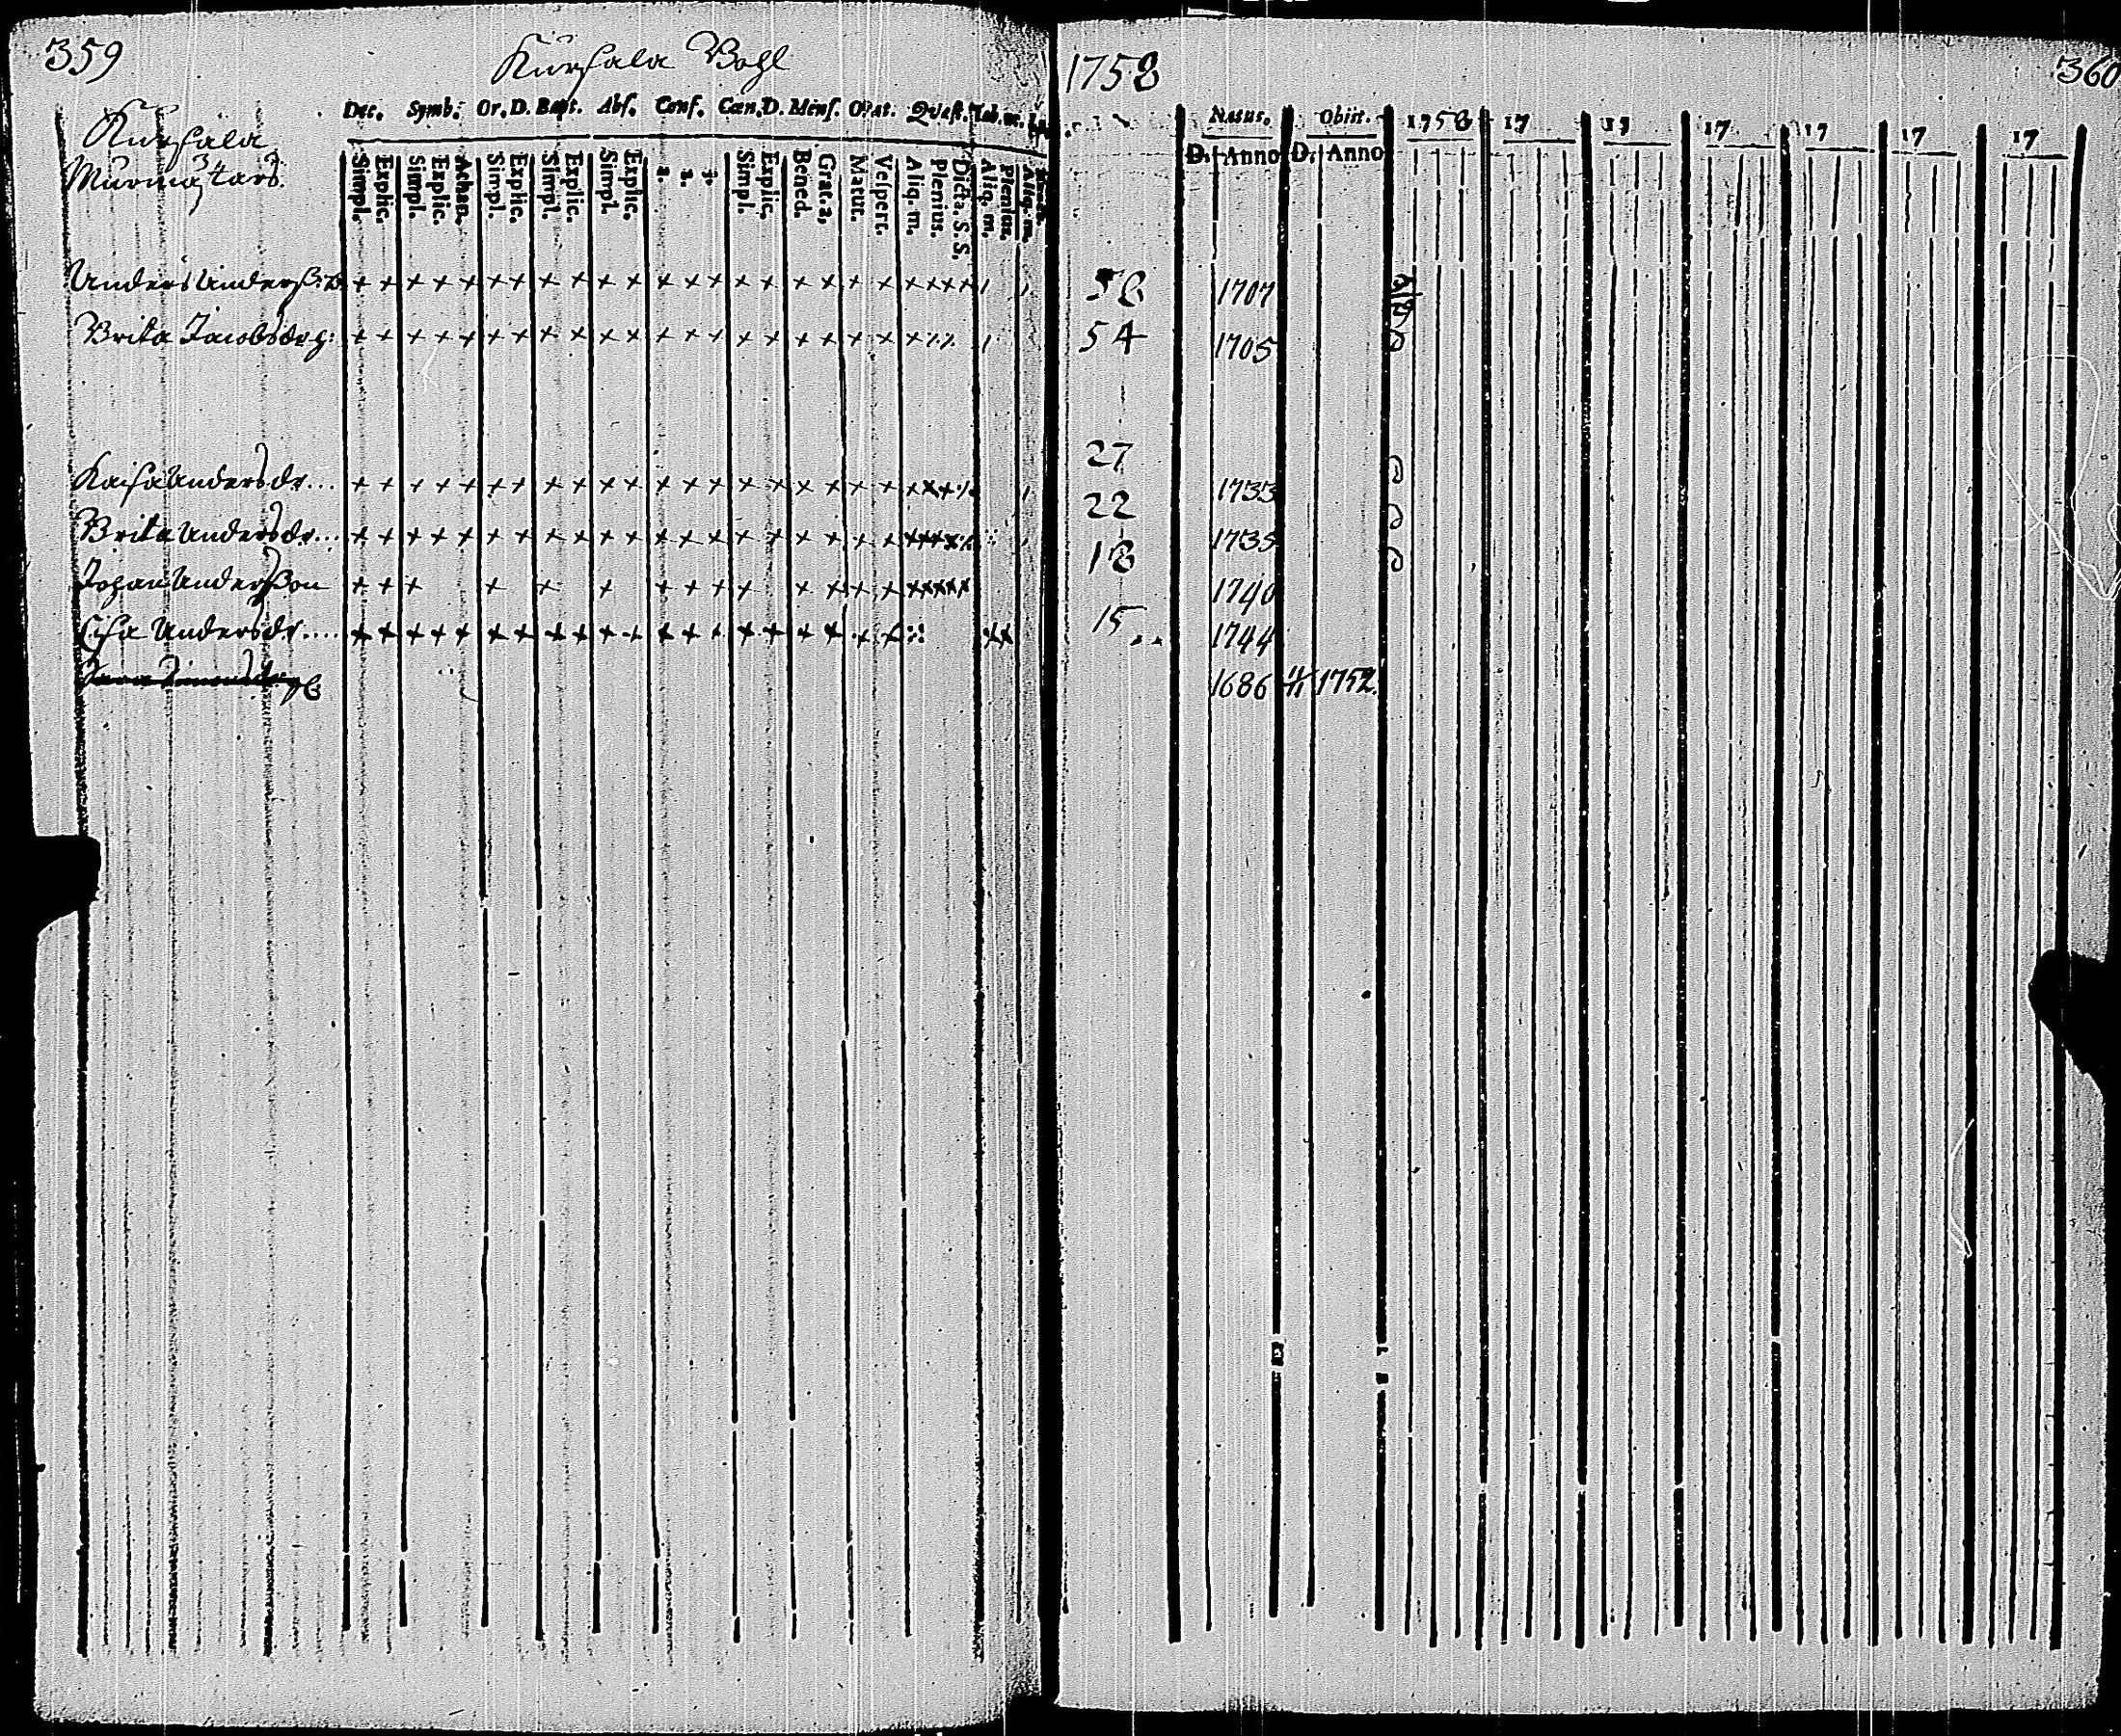 359
Kursala Bohl
1758
360
Kursala
Murmästars
Dec. Symb. Or. D. Bapt. Abs. Conf. Cœn. D. Mens. Orat. Quæst.
Simpl. Explic. Simpl. Explic. Athan. Simpl. Explic. Simpl. Explic. Simpl. Explic. 1. 2. 3. Simpl. Explic. Bened. Grat. a. Matut. Vespert. Aliq. m. Plenius. Dicta. S. S. Aliq. m. Plenius. Aliq. m.
Natus. Obiit. 1758 17 17 17 17 17 17
D. Anno D. Anno
Anders 58 1707
Brita Jacobsdr 54 1705
Kaisa Andersdr... 27 1733
Brita Andersdr... 22 1735
Johan Andersson 18 1740
Lisa Andersdr.... 15.. 1744
1686 1752.